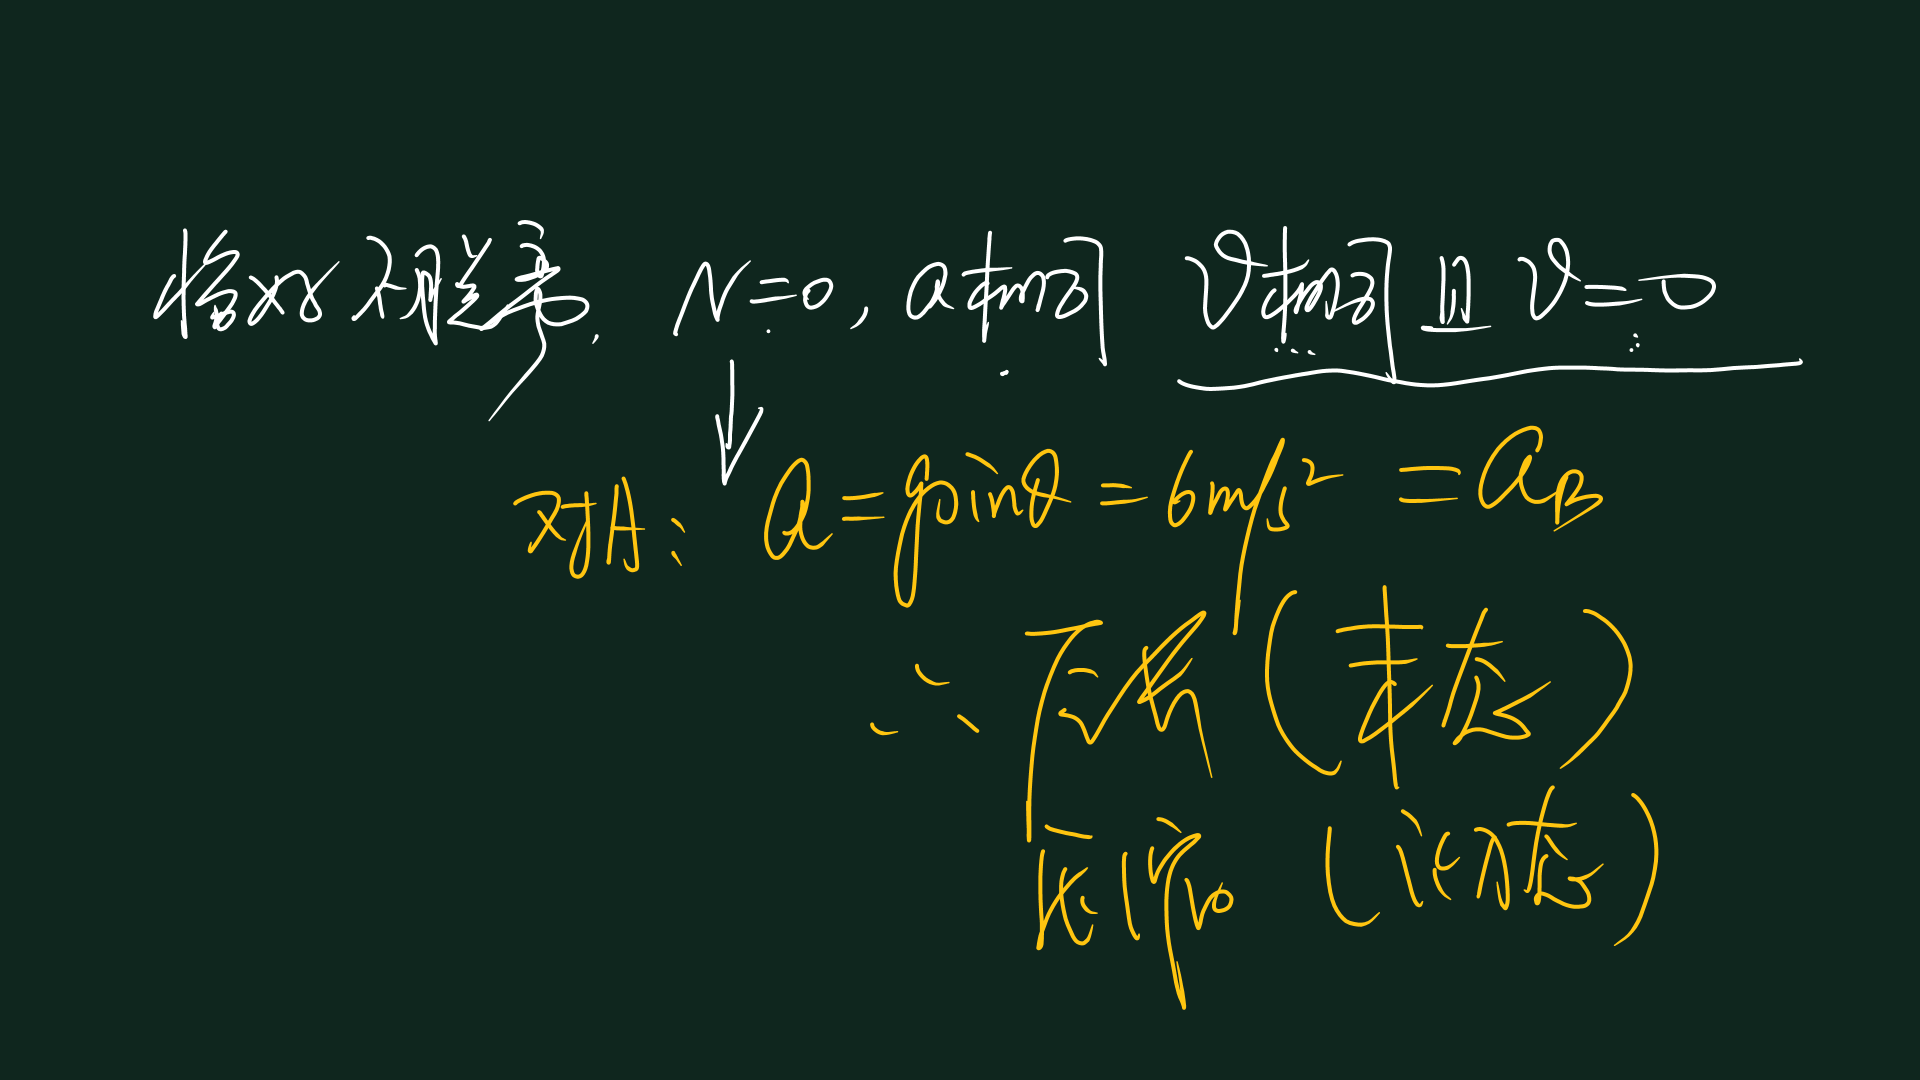 将好不脱离, N=0, a相同 v相同且v=0
对A: a=gsinθ=6m/s² =a_B
∴ 原长(末态)
(初态)